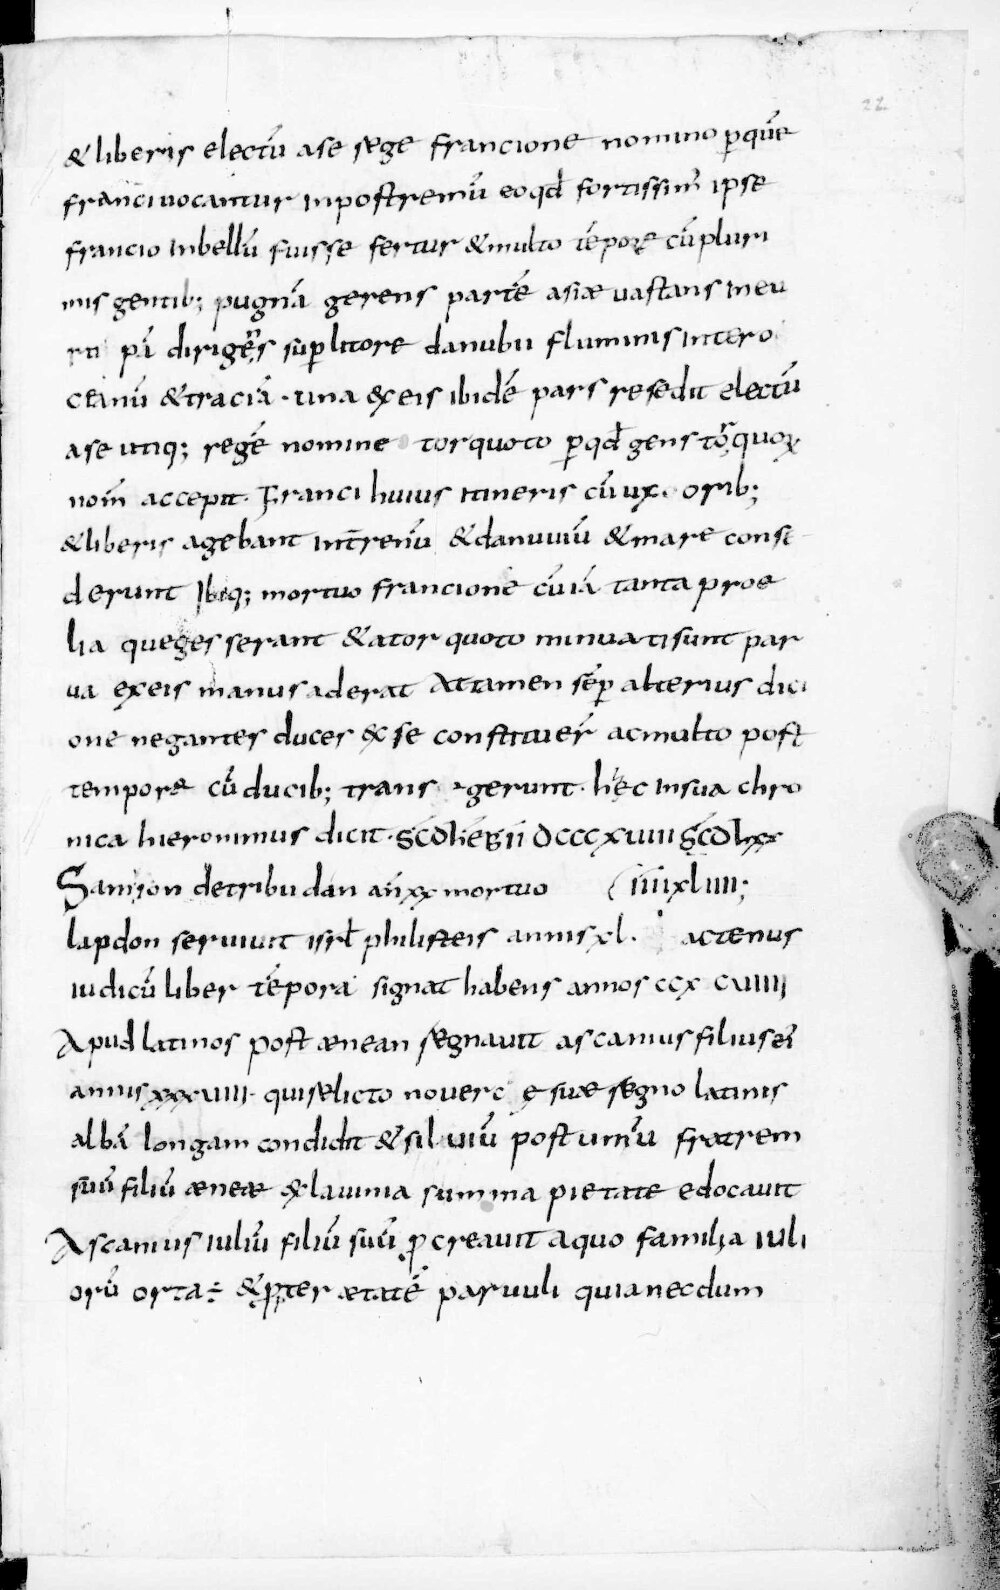 22
& liberis electū a se rege francione nomino p̄quē
franci vocantur in postremū eo qđ fortissim̄ ipse
francio in bellū fuisse fertur & multo tēpore cū pluri
mis gentib; pugnā gerens partē asiæ vastans in eu
pā dirigēs sup̄ litore danubii fluminis inter o
ceanū & traciā · una ex eis ibidē pars resedit electū
a se utiq; regē nomine torquoto p̄ qđ gens torquoꝝ
nom̄ accepit · Franci huius itineris cū ux orib;
& liberis agebant int̄ renū & danuuiū & mare conse
derunt Ibiq; mortuo francione cū iā tanta proe
lia que gesserant & a torquoto minuati sunt par
va ex eis manus aderat Attamen sēp alterius dici
one negantes duces ex se constituer̄ ac multo post
tempore cū ducib; trans gerunt · hęc in sua chro
nica hieronimus dicit ·
Samson de tribu dan añ xx mortuo īīīīxlıııı;
lapdon serviuit isrł philisteis annis xl · actenus
iudicū liber tēpora signat habens annos ccxcviiii
Apud latinos post ænean regnavit ascanius filius ei
annis xxxviiii · qui relicto noverc ę suæ regno latinis
albā longam condidit & silviū postumū fratrem
suū filiū æneæ ex lavinia summa pietate edocavit
Ascanius iuliū filiū suū p̱creavit a quo familia iuli
orū orta ÷ & p̱pter ætatē parvuli quia necdum